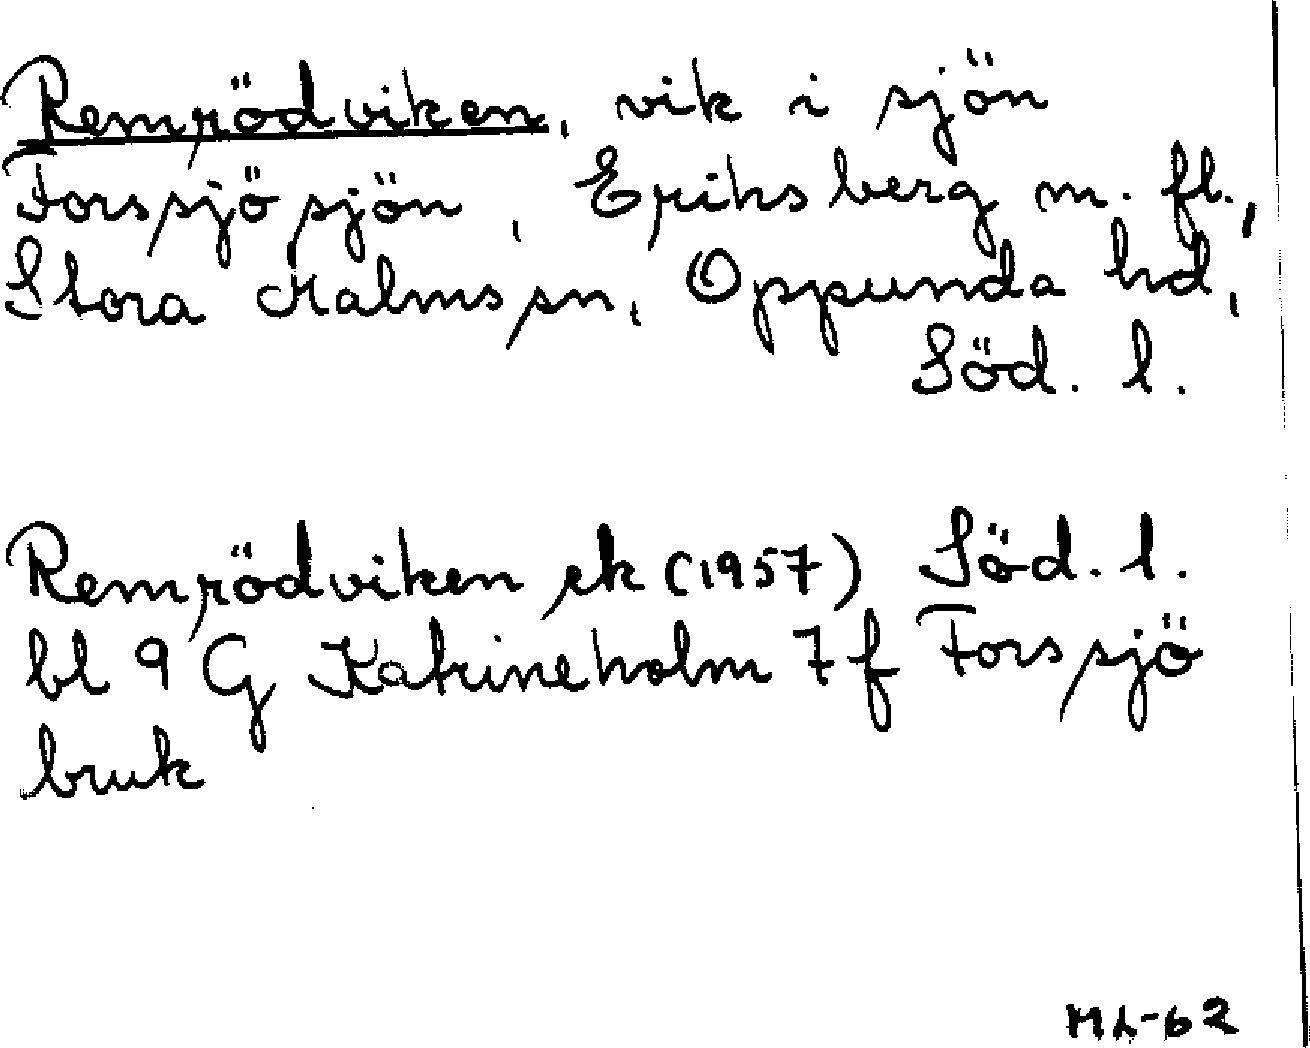 Remrödviken, vik i sjön
Forssjösjön, Eriksberg m. fl.,
Stora Malms sn, Oppunda hd,
Söd. l.
Remrödviken ek (1957) Söd. l.
bl 9 G Katrineholm 7 f Forssjö
bruk
ML-62